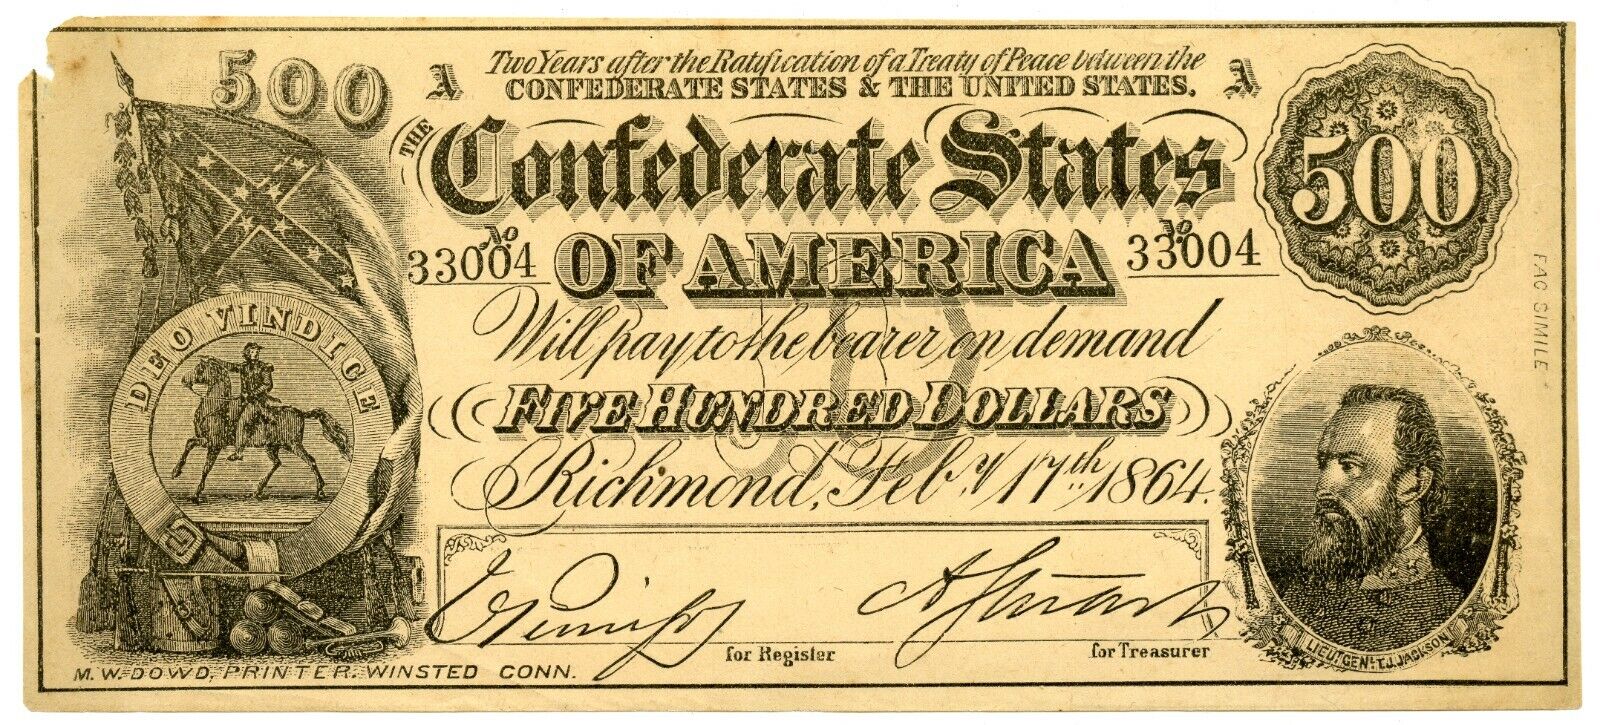 500
A Two Years after the Ratification of a Treaty of Peace between the A
CONFEDERATE STATES & THE UNITED STATES.
THE Confederate States
500
No 33004 OF AMERICA No 33004
Will pay to the bearer on demand
FIVE HUNDRED DOLLARS
Richmond, Feby. 17th 1864.
DEO VINDICE
FAC SIMILE
A Stuart
for Register
for Treasurer
LIEUT. GENL. T.J. JACKSON
M.W. DOWD, PRINTER. WINSTED CONN.